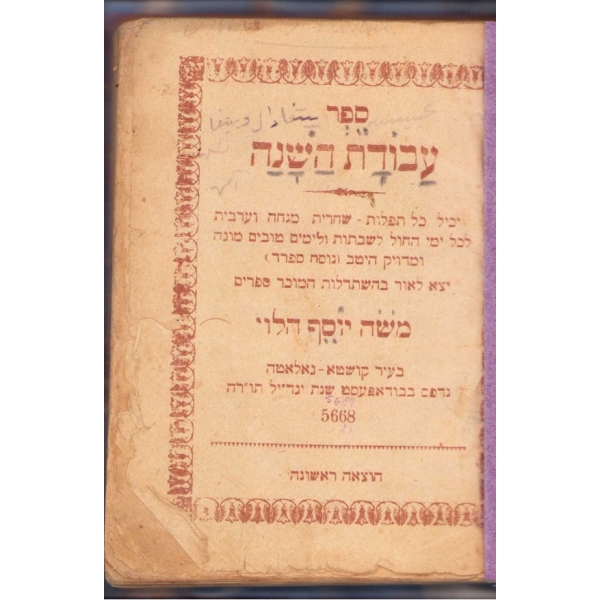 ספר
עֲבוֹדַת הַשָּׁנָה
יכיל כל תפלות - שחרית מנחה וערבית
לכל ימי החול לשבתות ולימים טובים מוגה
ומדויק היטב (נוסח ספרד)
יצא לאור בהשתדלות המוכר ספרים
משה יוסף הלוי
בעיר קושטא - גאלאטה
נדפס בבודאפעסט שנת יגד״יל תו״רה
5668
הוצאה ראשונה